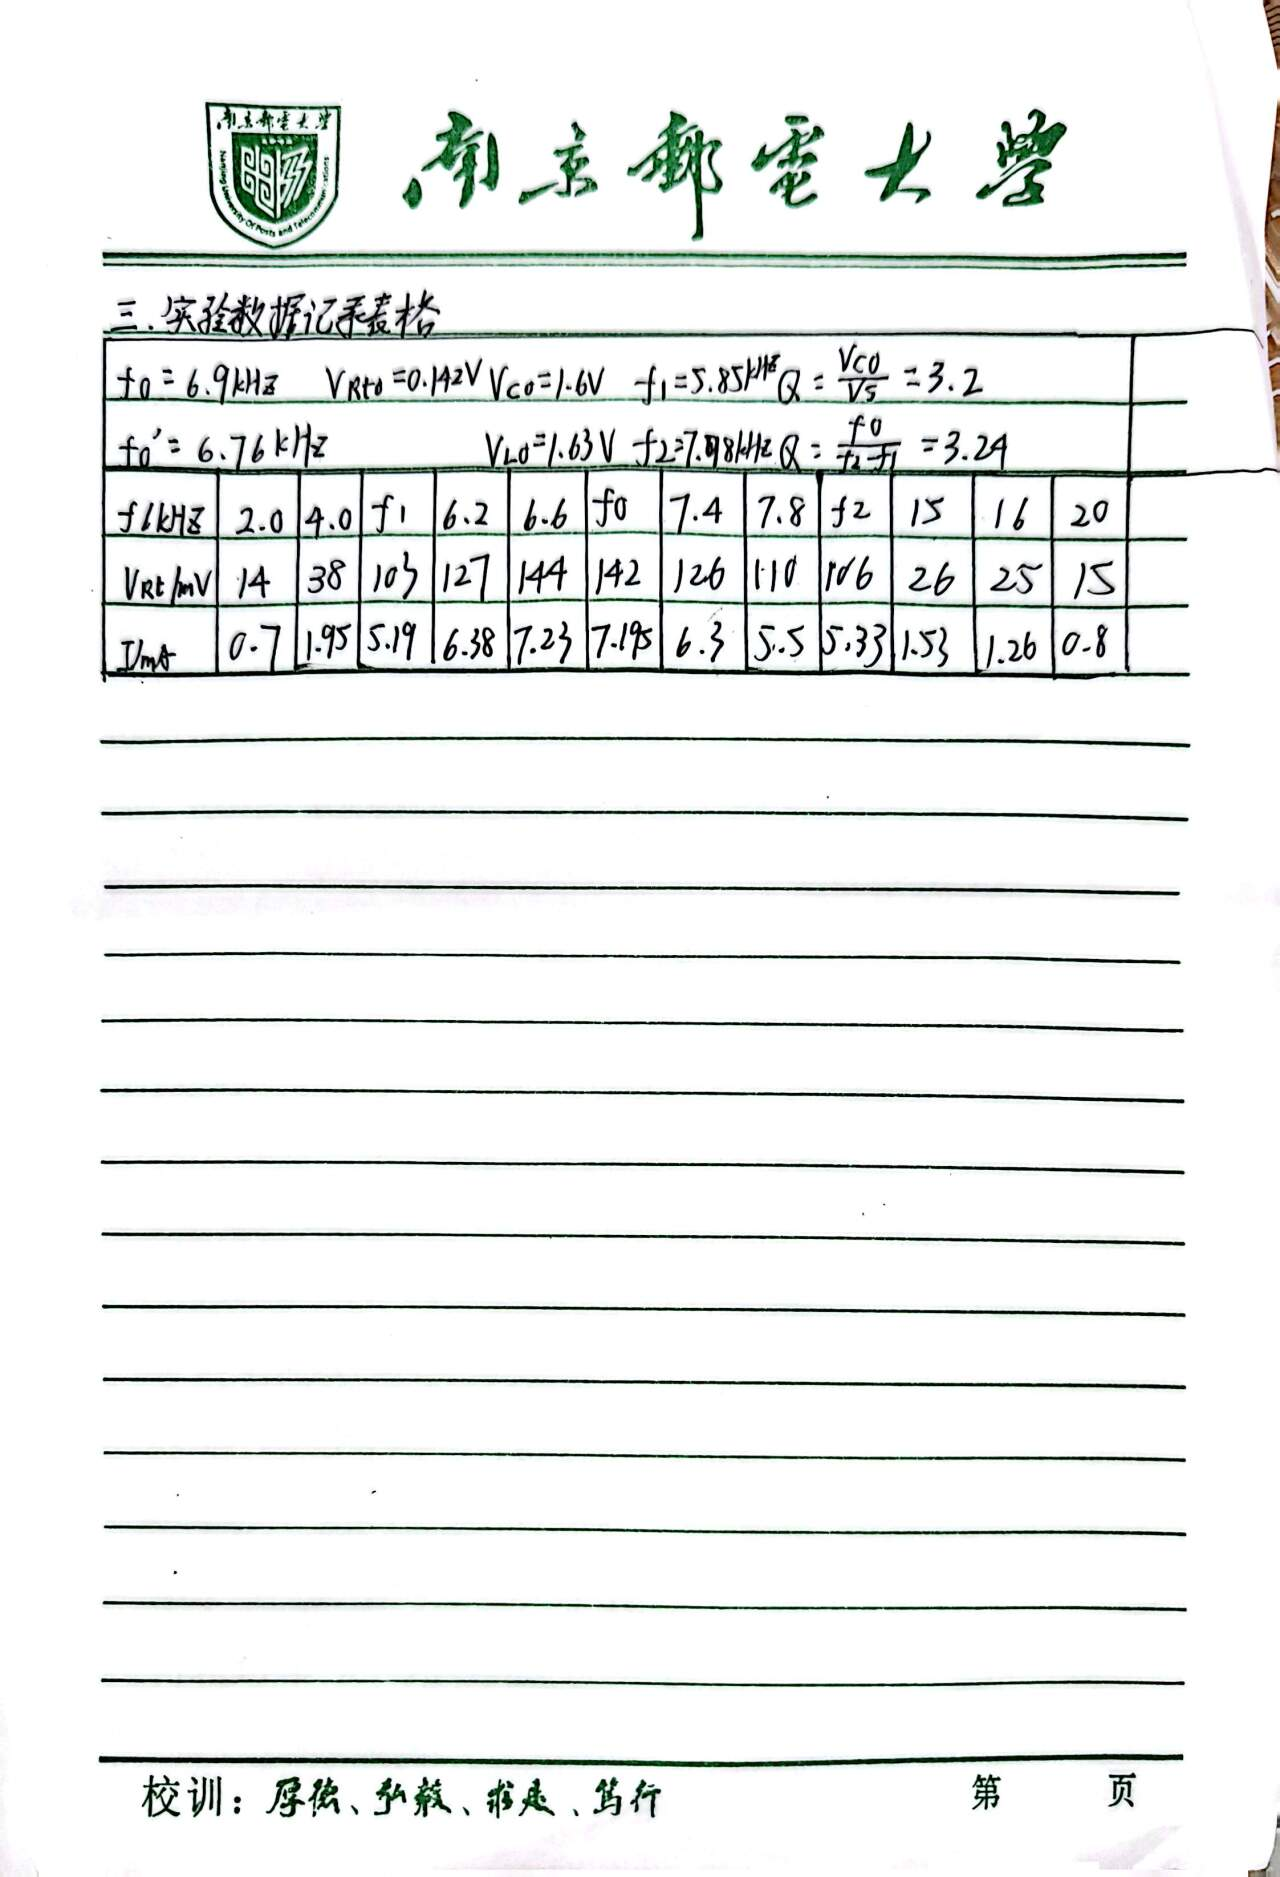 南京邮电大学
Nanjing University Of Posts and Telecommunications
南京邮电大学
三.实验数据记录表格
f0=6.9kHz VRt0=0.142V VC0=1.6V f1=5.85kHz Q=VC0/VS=3.2
f0'=6.76kHz VL0=1.63V f2=7.98kHz Q=f0/f2-f1=3.24
f/kHz 2.0 4.0 f1 6.2 6.6 f0 7.4 7.8 f2 15 16 20
VRt/mV 14 38 103 127 144 142 126 110 106 26 25 15
I/mA 0.7 1.95 5.19 6.38 7.23 7.195 6.3 5.5 5.33 1.53 1.26 0.8
校训：厚德、弘毅、求是、笃行 第 页